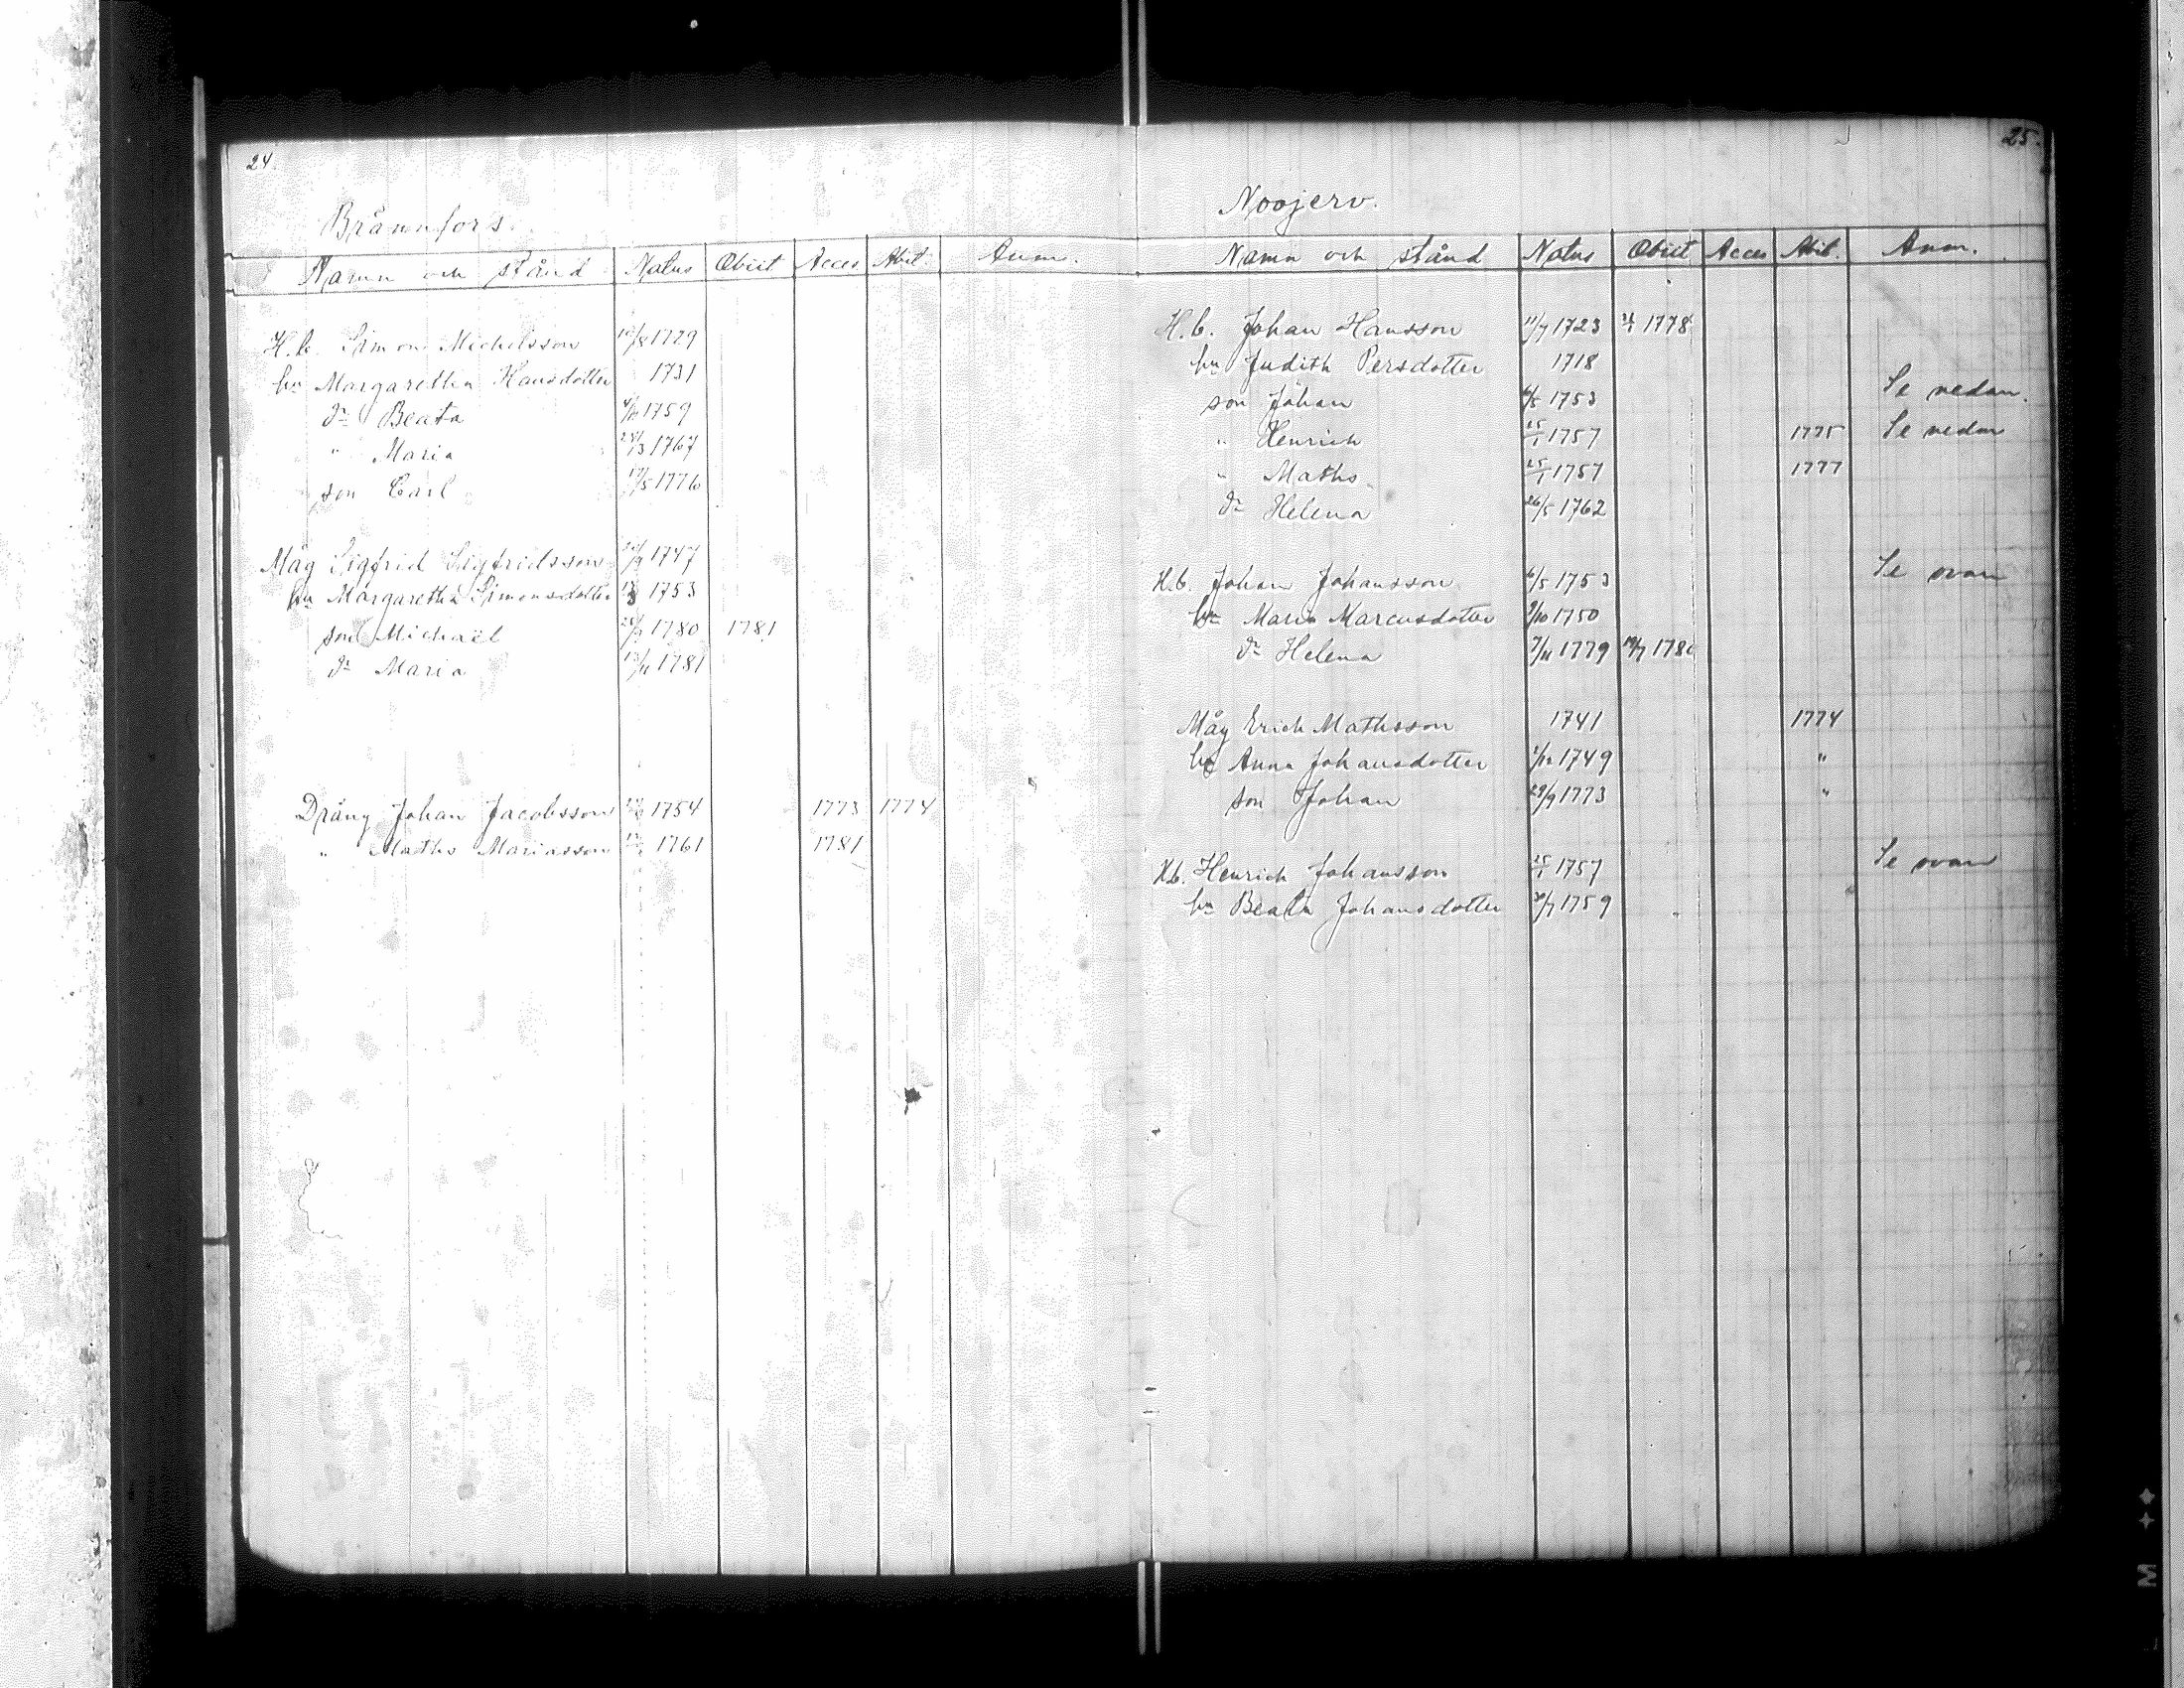 24.
Brännfors.
Namn och stånd Natus Obiit Acces Abit. Anm.
H.b. Simon Michelsson 10/8 1729
hu Margaretha Hansdotter 1731
dr Beata 1759
" Maria 1767
son Carl 17/5 1776
Måg Sigfrid Sigfridsson 1747
hu Margaretha Simonsdotter 1753
son Michaël 1780 1781
dr Maria 1781
Dräng Johan Jacobsson 1754 1773 1774
" Maths Mariasson 1761 1781
25.
Noojerv.
Namn och stånd Natus Obiit Acces Abit. Anm.
H.b. Johan Hansson 11/7 1723 1778
hu Judith Persdotter 1718
son Johan 6/5 1753 Se nedan.
" Henrich 25/1 1757 1775 Se nedan
" Maths 25/1 1757 1777
dr Helena 26/5 1762
H.b. Johan Johansson 6/5 1753 Se ovan
hu Maria Marcusdotter 9/10 1750
dr Helena 7/11 1779 19/7 1780
Måg Erich Mathsson 1741 1774
hu Anna Johansdotter 1749 "
son Johan 29/9 1773 "
H.b. Henrich Johansson 25/1 1757 Se ovan
hu Beata Johansdotter 1759
M